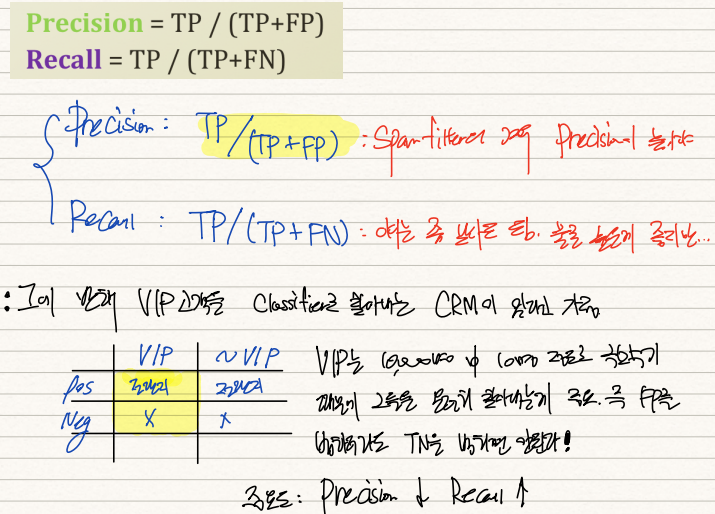 Precision = TP / (TP+FP)
Recall = TP / (TP+FN)
Precision : TP/(TP+FP) : Spam filter의 경우 Precision이 높아야
Recall : TP/(TP+FN) : 이는 좀 낮아도 됨. 물론 높은게 좋지만...
: 그에 반해 VIP 고객들 Classifier로 찾아내는 CRM이 있다고 가정
VIP ~VIP
Pos
Neg X X
VIP는 中 정도로 극소수기
때문에 그들을 찾아내는게 중요. 즉 FP를
TN을 범하면 안된다!
중요도 : Precision ↓ Recall ↑